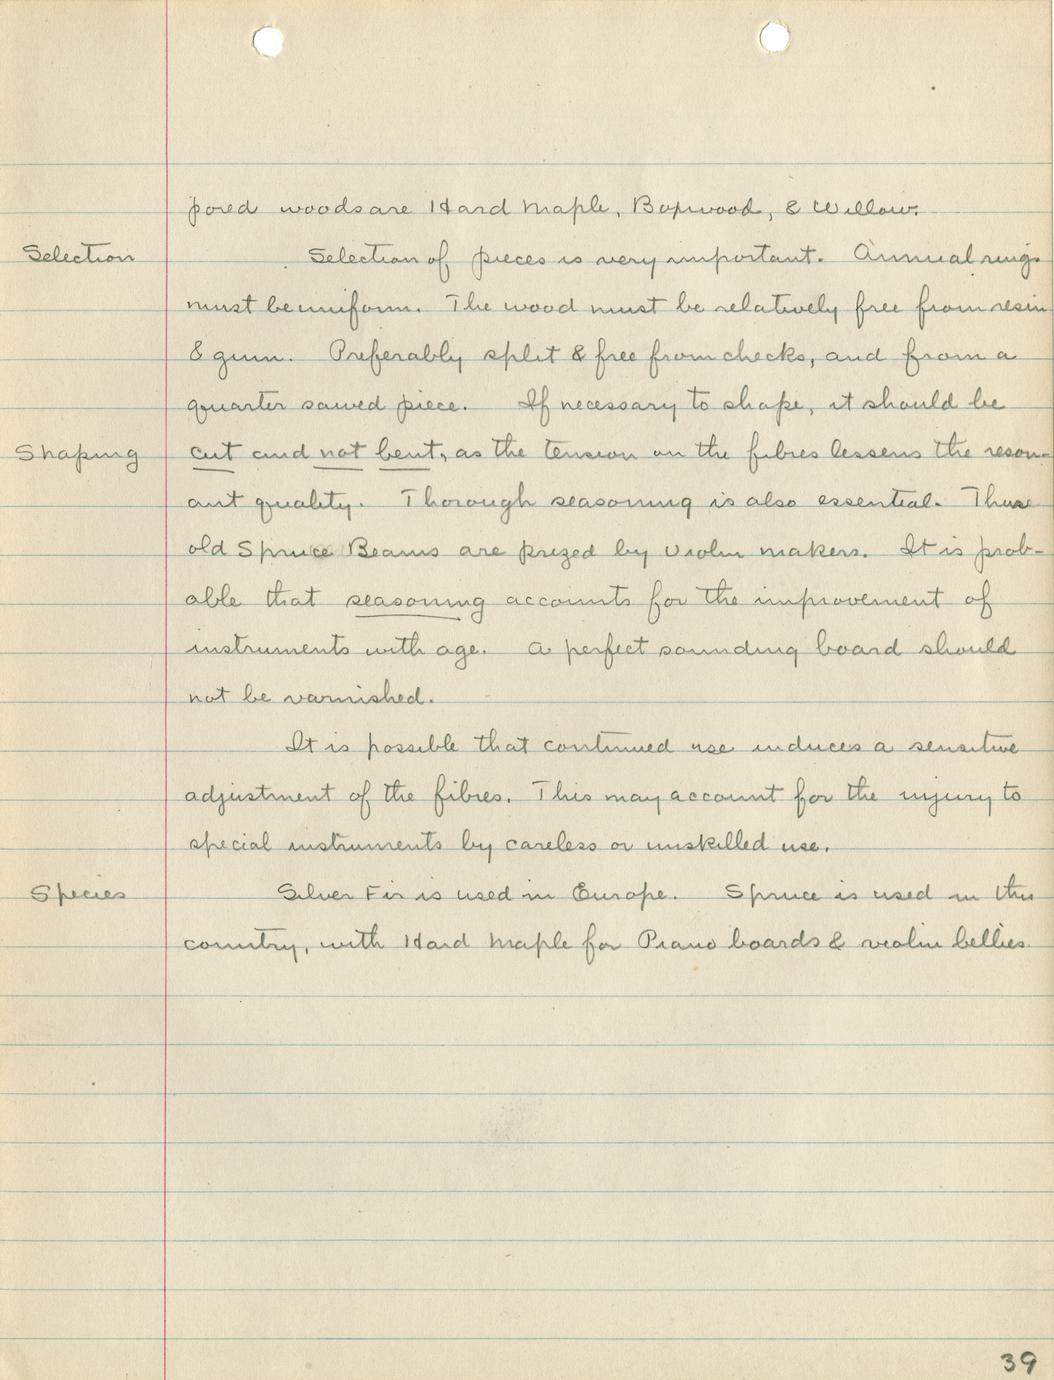 pored woods are Hard Maple, Boxwood, & Willow.
Selection Selection of pieces is very important. Annual rings
must be uniform. The wood must be relatively free from resin
& gum. Preferably split & free from checks, and from a
quarter sawed piece. If necessary to shape, it should be
Shaping cut and not bent, as the tension on the fibres lessens the reson-
ant quality. Thorough seasoning is also essential. Thus
old Spruce Beams are prized by violin makers. It is prob-
able that seasoning accounts for the improvement of
instruments with age. A perfect sounding board should
not be varnished.
It is possible that continued use induces a sensitive
adjustment of the fibres. This may account for the injury to
special instruments by careless or unskilled use.
Species Silver Fir is used in Europe. Spruce is used in this
country, with Hard Maple for Piano boards & violin bellies.
39